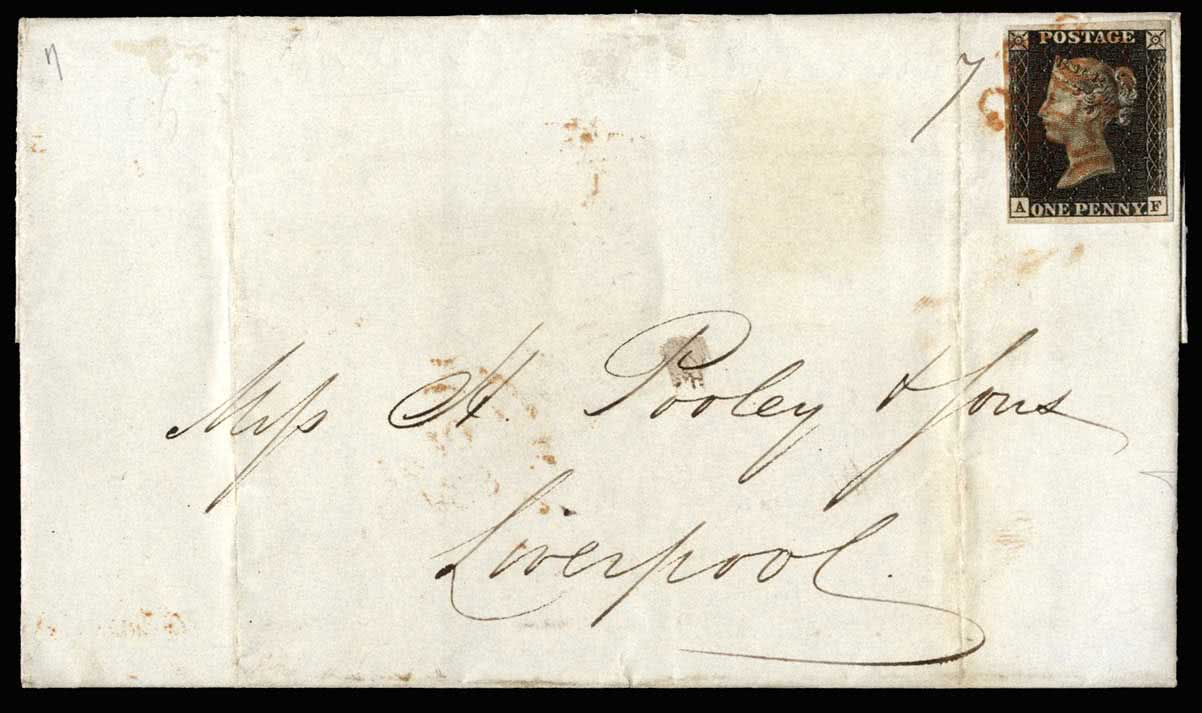 η
7
POSTAGE
A ONE PENNY F
Mess H. Pooley & Sons
Liverpool.